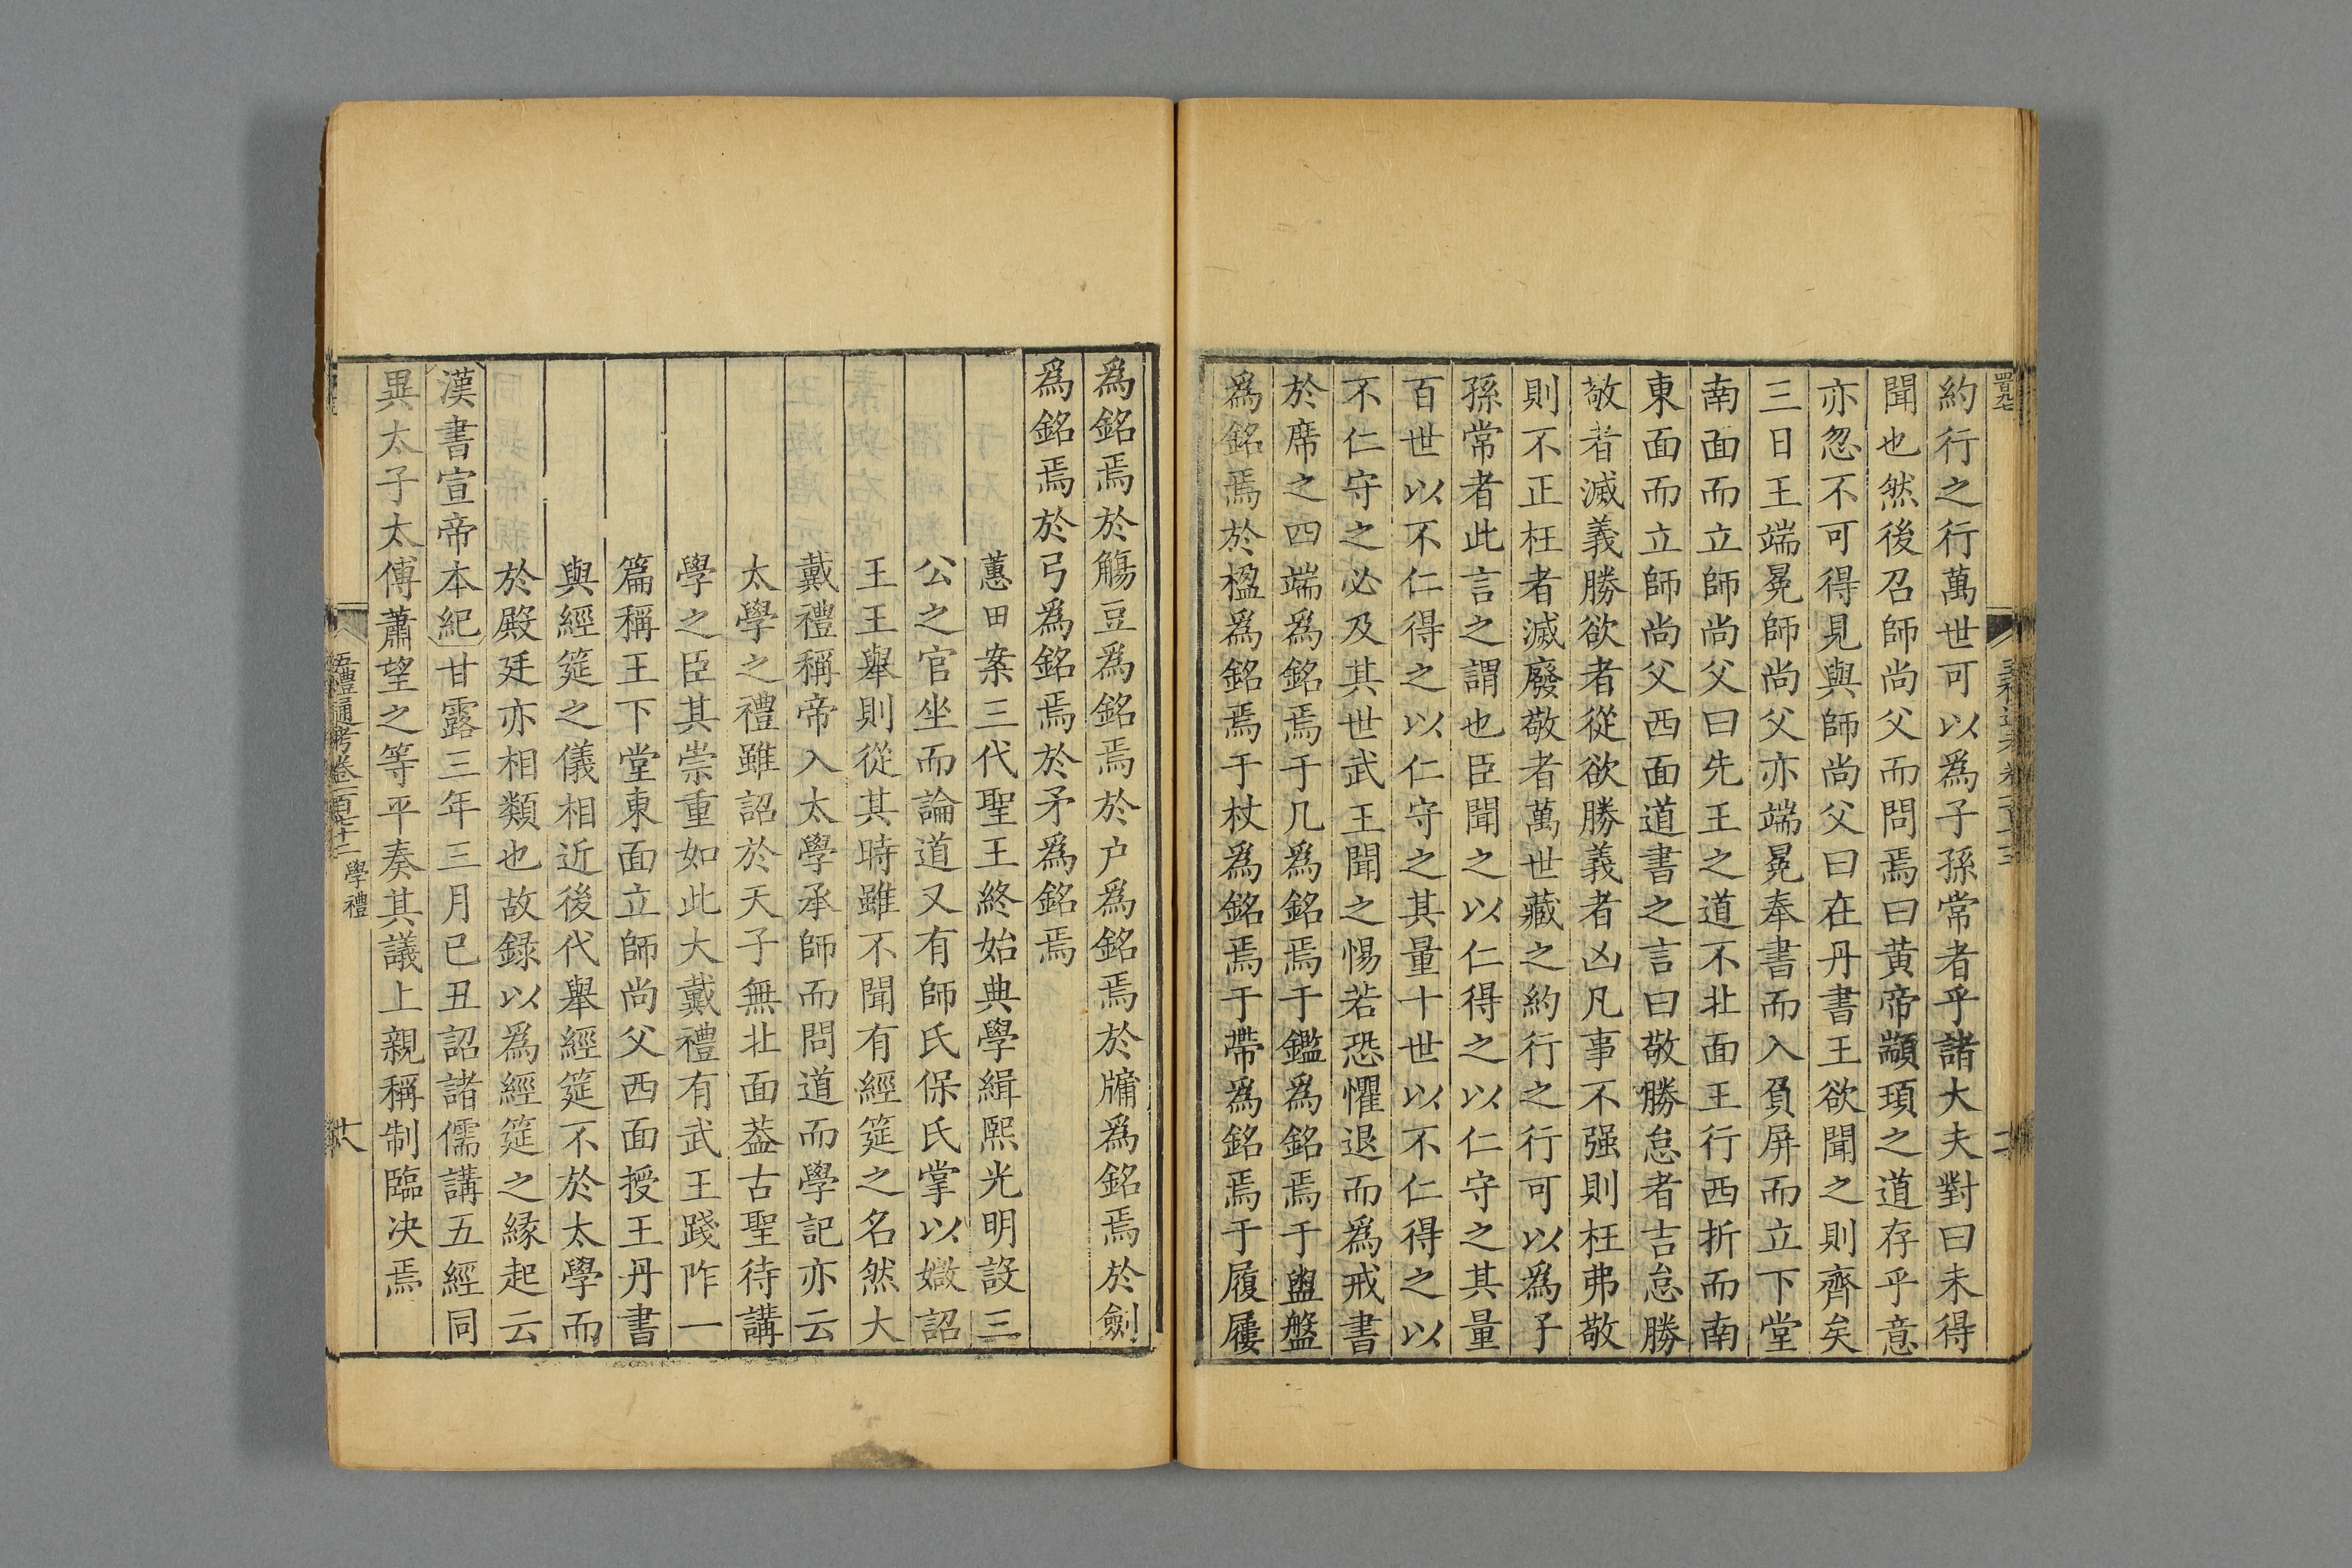 約行之行萬世可以爲子孫常者乎諸大夫對曰未得
聞也然後召師尚父而問焉曰黄帝顓頊之道存乎意
亦忽不可得見與師尚父曰在丹書王欲聞之則齊矣
三日王端冕師尚父亦端冕奉書而入負屏而立下堂
南面而立師尚父曰先王之道不北面王行西折而南
東面而立師尚父西面道書之言曰敬勝怠者吉怠勝
敬者滅義勝欲者從欲勝義者凶凡事不强則枉弗敬
則不正枉者滅廢敬者萬世藏之約行之行可以爲子
孫常者此言之謂也臣聞之以仁得之以仁守之其量
百世以不仁得之以仁守之其量十世以不仁得之以
不仁守之必及其世武王聞之惕若恐懼退而爲戒書
於席之四端爲銘焉于几爲銘焉于鑑爲銘焉于盥盤
爲銘焉於楹爲銘焉于杖爲銘焉于帶爲銘焉于履屨
爲銘焉於觴豆爲銘焉於户爲銘焉於牖爲銘焉於劍
爲銘焉於弓爲銘焉於矛爲銘焉
蕙田案三代聖王終始典學緝熙光明設三
公之官坐而論道又有師氏保氏掌以媺詔
王王舉則從其時雖不聞有經筵之名然大
戴禮稱帝入太學承師而問道而學記亦云
太學之禮雖詔於天子無北面葢古聖待講
學之臣其崇重如此大戴禮有武王踐阼一
篇稱王下堂東面立師尚父西面授王丹書
與經筵之儀相近後代舉經筵不於太學而
於殿廷亦相類也故録以爲經筵之緣起云
漢書宣帝本紀甘露三年三月已丑詔諸儒講五經同
異太子太傅蕭望之等平奏其議上親稱制臨決焉
五禮通考卷一百七十二 學禮